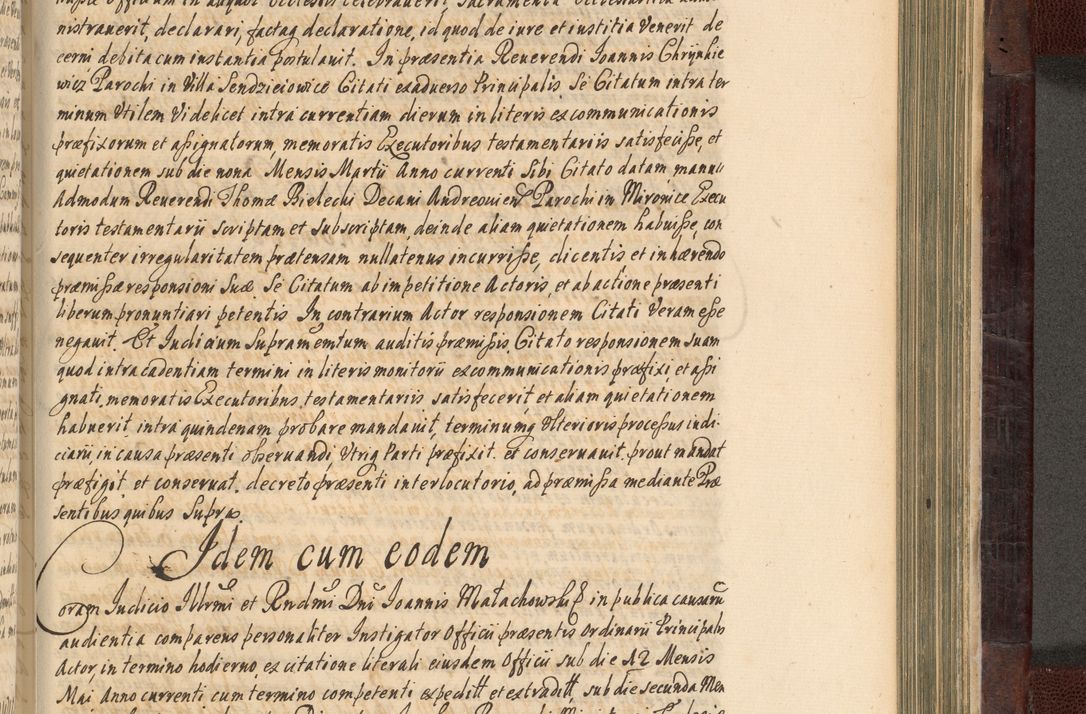 nistrauerit, declarari, factaq declaratione, id quod de iure et iustitia Venerit de
cerni debita cum instantia postulauit. In præsentia Reuerendi Ioannis Chrijnkie
wicz Parochi in Villa Sendzieiowice Citati ex aduerso Principalis Se Citatum intra ter
minum Vtilem Videlicet intra currentiam dierum in literis excommunicationis
præfixorum et assignatorum, memoratis Executoribus testamentariis satisfecisse, et
quietationem sub die nona Mensis Martij Anno currenti Sibi Citato datam, manu
Admodum Reuerendi Thomæ Bielecki Decani Andreouien Parochi in Mironice Execu
toris testamentarij scriptam et subscriptam, deinde aliam quietationem habuisse, con
sequenter irregularitatem prætensam nullatenus incurrisse, dicentis et inhærendo
præmissæ responsioni Suæ Se Citatum ab impetitione Actoris, et ab actione præsenti
liberum pronuntiari petentis In contrarium Actor responsionem Citati Veram esse
negauit Et Iudicium Supramemtum auditis præmissis Citato responsionem suam
quod intra cadentiam termini in literis monitorij excommunicationis præfixi, et assi
gnati, memoratis Executoribus testamentariis satisfecerit, et aliam quietationem
habuerit intra quindenam probare mandauit, terminumq Vlterioris processus iudi-
ciarij, in causa præsenti obseruandi, Vtriq Parti præfixit et conseruauit, prout mandat
præfigit et conseruat decreto præsenti interlocutorio, ad præmissa mediante Præ
sentibus quibus Supra.
Idem cum eodem
Coram Iudicio Illrmi et Rndmi Dni Ioannis Małachowski in publica causarū
audientia comparens personaliter Instigator Officij præsentis Ordinarij Principalis
Actor, in termino hodierno ex citatione literali eiusdem Officij sub die 12 Mensis
Mai Anno currenti cum termino competenti expeditt et extraditt, sub die secunda Men